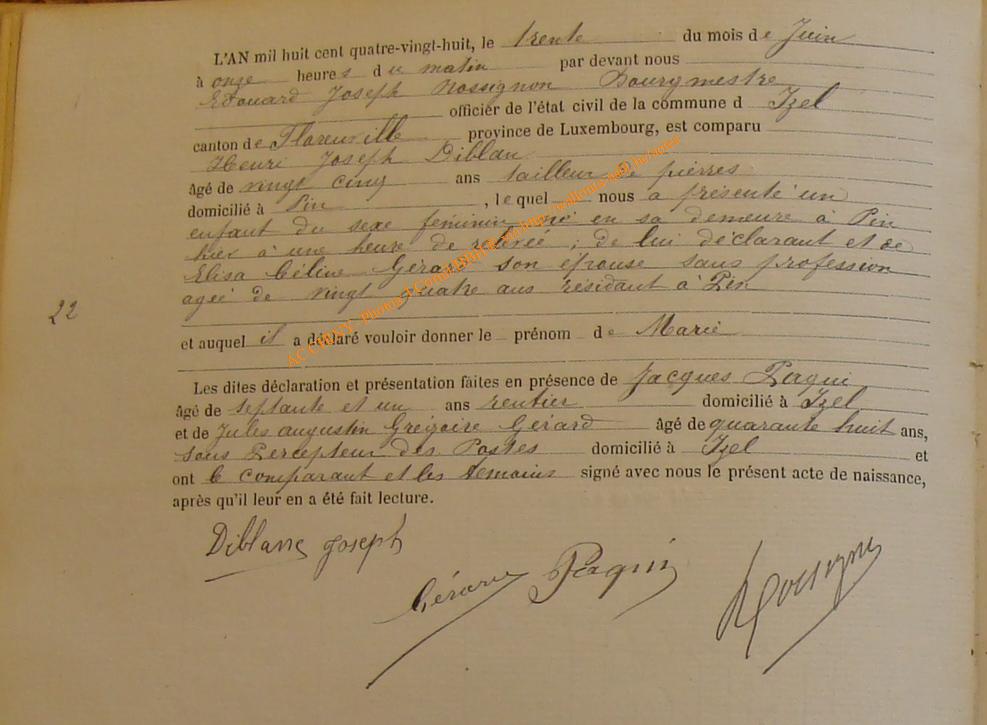 L'AN mil huit cent quatre-vingt-huit, le trente du mois de Juin
à onze heures du matin par devant nous
Edouard Joseph Rossignon Bourgmestre
officier de l'état civil de la commune d Izel
canton de Florenville province de Luxembourg, est comparu
Henri Joseph Diblan
âgé de vingt cinq ans tailleur de pierres
domicilié à Pin, lequel nous a présenté un
enfant du sexe féminin né en sa demeure à Pin
hier à une heure de relevée; de lui déclarant et de
Elisa Céline Gérard son épouse sans profession
agée de vingt quatre ans résidant à Pin
22
et auquel il a déclaré vouloir donner le prénom de Marie
Les dites déclaration et présentation faites en présence de Jacques Paqui
âgé de septante et un ans rentier domicilié à Izel
et de Jules augustin Grégoire Gérard âgé de quarante huit ans,
sous Percepteur des Postes domicilié à Izel et
ont le comparant et les témoins signé avec nous le présent acte de naissance,
après qu'il leur en a été fait lecture.
Diblanc Joseph
Gérard Paquin Rossignon